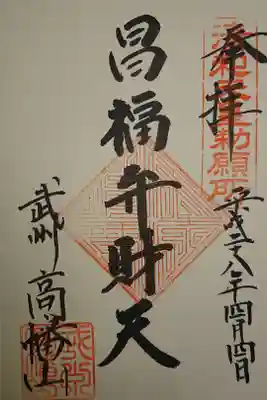 清和天皇勅願所
奉拝
平成二八年四月四日
昌福弁財天
武州 高幡山